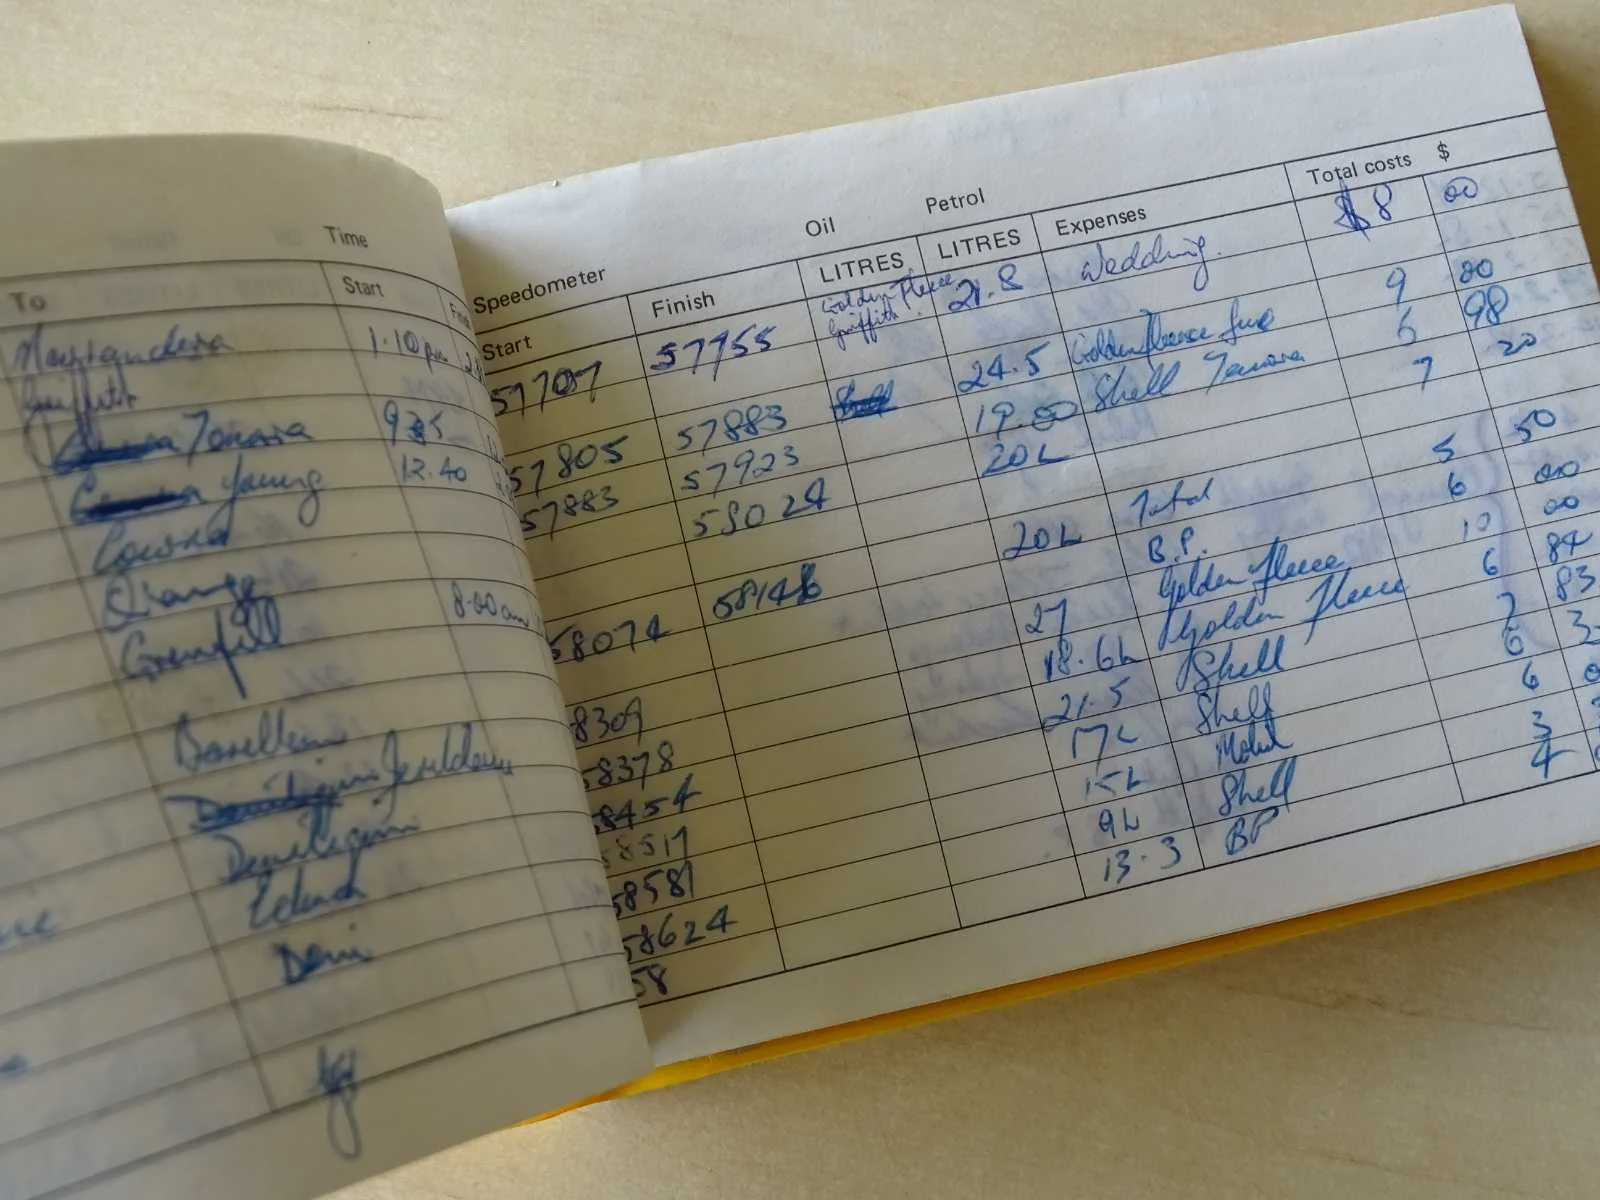 Time
To Start
1.10pm
Griffith
Temora 9.35
Young 12.40
Cowra
Orange
Grenfell 8.00am
Barellan
Jerilderie
Deniliquin
Echuca
Deni
Oil Petrol
Speedometer LITRES LITRES Expenses Total costs $
Start Finish Golden Fleece Griffith. 21.8 Wedding. $8 00
57707 57755
24.5 Golden Fleece 9 00
57805 57883 19.00 Shell Temora 98
57883 57923 20L 7 20
58024
20L Total 5 50
B.P. 6 00
58074 58146 27 Golden Fleece 10 00
18.6L Golden Fleece 6 84
58309 21.5 Shell 7 83
58378 17L Shell 6
58454 15L Mobil 6
58517 9L Shell 3
58581 13.3 BP 4
58624
58